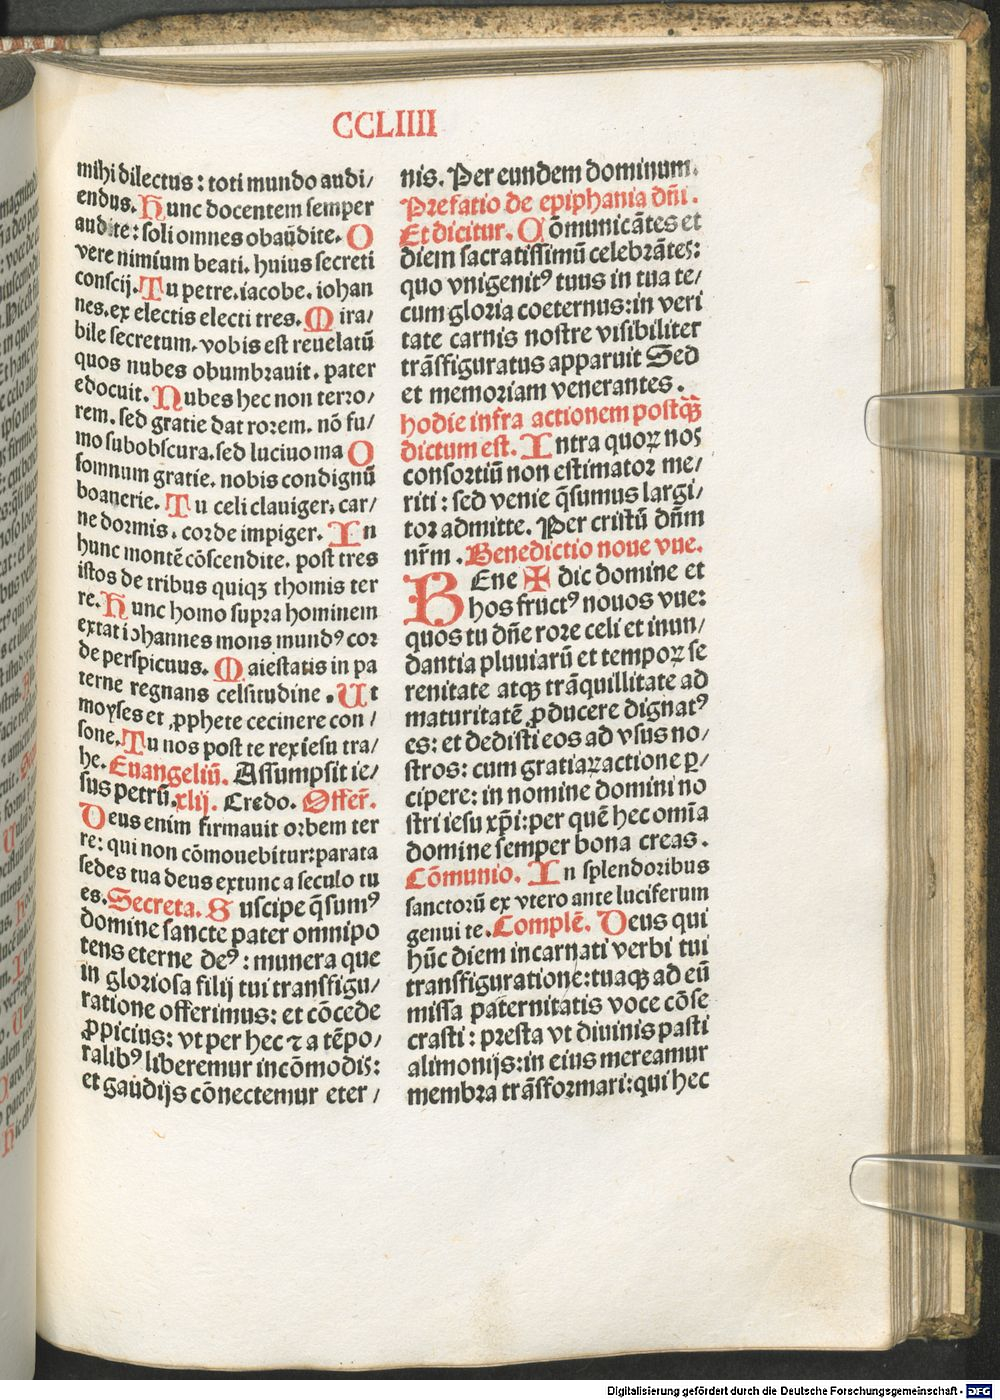 CCLIIII
mihi dilectus : toti mundo audi/
endus. Hunc docentem semper
audite : soli omnes obaudite. O
vere nimium beati. huius secreti
conscij. Tu petre. iacobe. iohan
nes. ex electis electi tres. Mira/
bile secretum. vobis est reuelatū
quos nubes obumbrauit. pater
edocuit. Nubes hec non terro/
rem. sed gratie dat rorem. nō fu/
mo subobscura. sed luciuoma O
somnum gratie. nobis condignū
boanerie. Tu celi clauiger. car/
ne dormis. corde impiger. In
hunc montē cōscendite. post tres
istos de tribus quiqꝫ thomis ter
re. Hunc homo supra hominem
extat iohannes mons mundꝰ cor
de perspicuus. Maiestatis in pa
terne regnans celsitudine . Ut
moyses et ꝓphete cecinere con /
sone. Tu nos post te rex iesu tra/
he. Euangeliū. Assumpsit ie/
sus petrū. xlij. Credo. Offer̄.
Deus enim firmauit orbem ter
re : qui non cōmouebitur: parata
sedes tua deus extunc a seculo tu
es. Secreta. Suscipe q̄sumꝰ
domine sancte pater omnipo
tens eterne deꝰ : munera que
in gloriosa filij tui transfigu/
ratione offerimus: et cōcede
ꝓpicius: vt per hec ⁊ a tēpo/
ralibꝰ liberemur incōmodis:
et gaudijs cōnectemur eter /
nis. Per eundem dominum.
Prefatio de epiphania dn̄i .
Et dicitur. Cōmunicātes et
diem sacratissimū celebrātes:
quo vnigenitꝰ tuus in tua te/
cum gloria coeternus: in veri
tate carnis nostre visibiliter
trāsfiguratus apparuit Sed
et memoriam venerantes .
hodie infra actionem postqꝫ̄
dictum est. Intra quoꝝ nos
consortiū non estimator me/
riti : sed venie q̄sumus largi/
tor admitte. Per cristū dn̄m
nr̄m . Benedictio noue vue.
BEne ✠ dic domine et
hos fructꝰ nouos vue:
quos tu dn̄e rore celi et inun/
dantia pluuiarū et tempoꝝ se
renitate atqꝫ trāquillitate ad
maturitatē ꝓducere dignatꝰ
es: et dedisti eos ad vsus no/
stros: cum gratiaꝝ actione ꝑ/
cipere: in nomine domini no
stri iesu xp̄i: per quē hec omīa
domine semper bona creas .
Cōmunio. In splendoribus
sanctorū ex vtero ante luciferum
genui te. Complē. Deus qui
hūc diem incarnati verbi tui
transfiguratione: tuaqꝫ ad eū
missa paternitatis voce cōse
crasti : presta vt diuinis pasti
alimonijs: in eius mereamur
membra trāsformari: qui hec
Digitalisierung gefördert durch die Deutsche Forschungsgemeinschaft - DFG